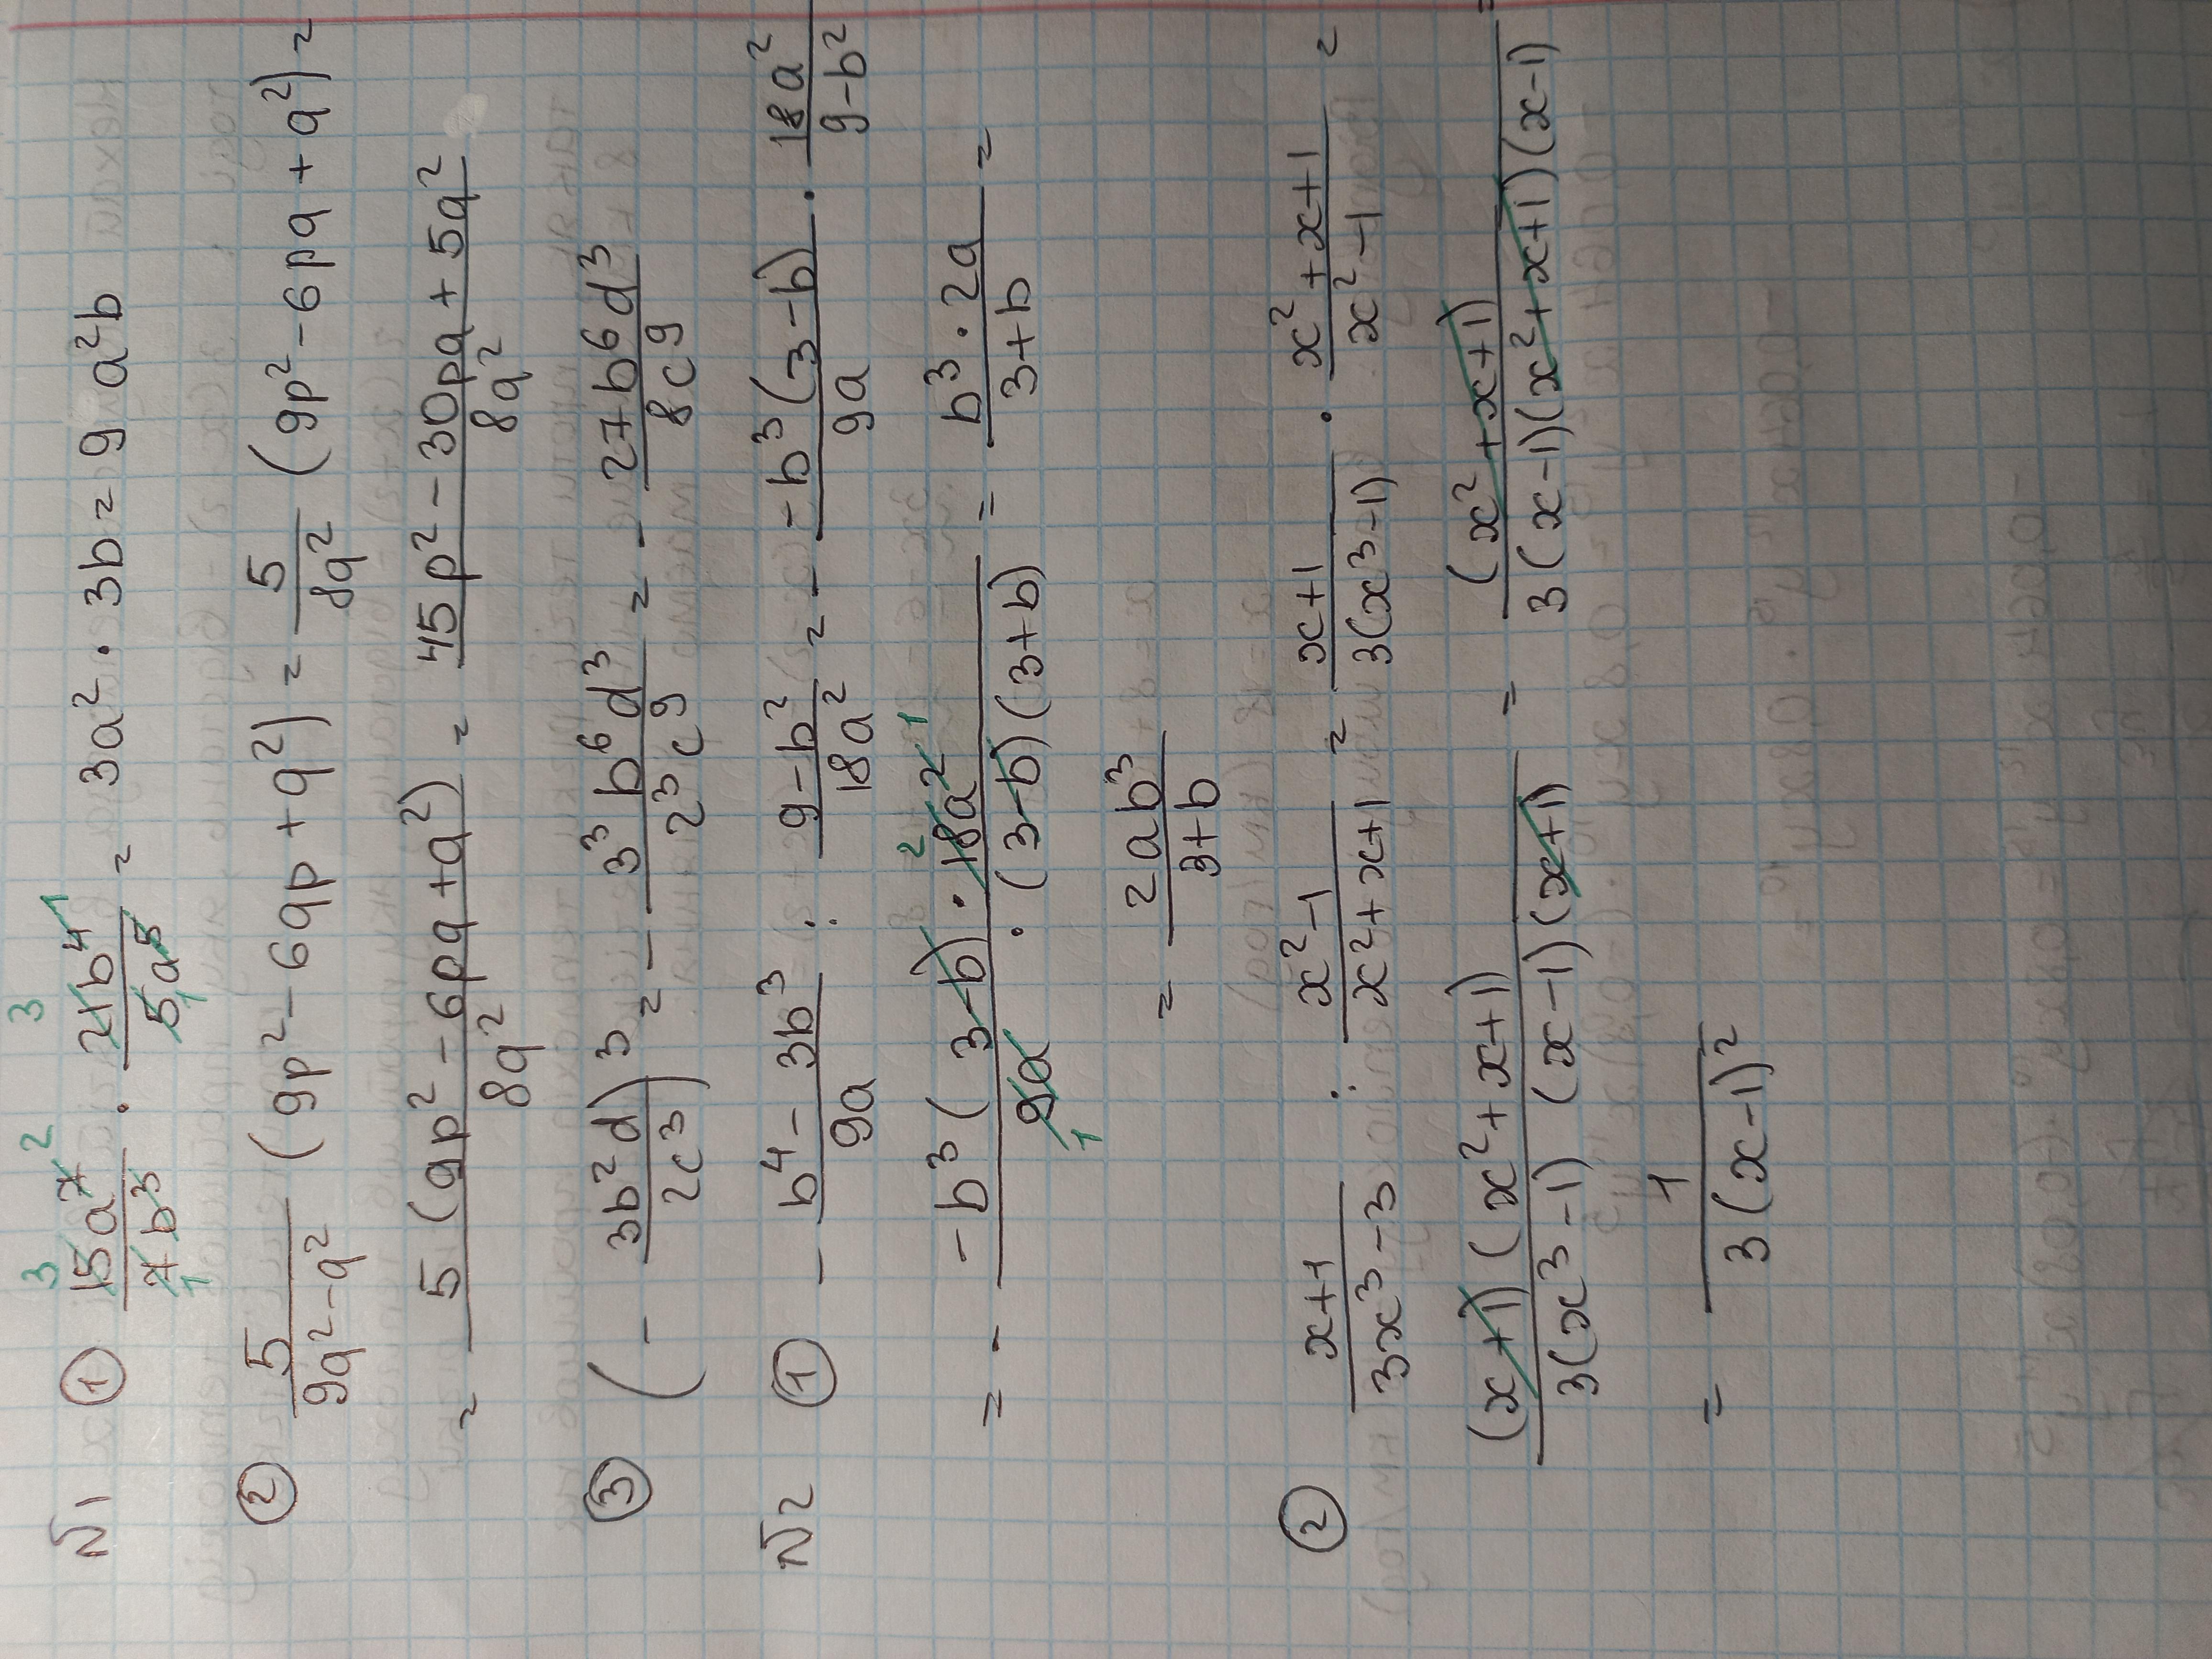 N1 ① 15a⁷/7b³ · 21b⁴/5a⁵ = 3a² · 3b = 9a²b
② 5/(9q²-q²) (9p²-6qp+q²) = 5/8q² (9p²-6pq+q²) =
= 5(9p²-6pq+q²)/8q² = (45p²-30pq+5q²)/8q²
③ (-3b²d/2c³)³ = -3³b⁶d³/2³c⁹ = -27b⁶d³/8c⁹
N2 ① -(b⁴-3b³)/9a : (9-b²)/18a² = - -b³(3-b)/9a · 18a²/(9-b²)
= - -b³(3-b) · 18a²/9a · (3-b)(3+b) = b³ · 2a/(3+b) =
= 2ab³/(3+b)
② (x+1)/(3x³-3) : (x²-1)/(x²+x+1) = (x+1)/3(x³-1) · (x²+x+1)/(x²-1) =
(x+1)(x²+x+1)/3(x³-1)(x-1)(x+1) = (x²+x+1)/3(x-1)(x²+x+1)(x-1) =
= 1/3(x-1)²